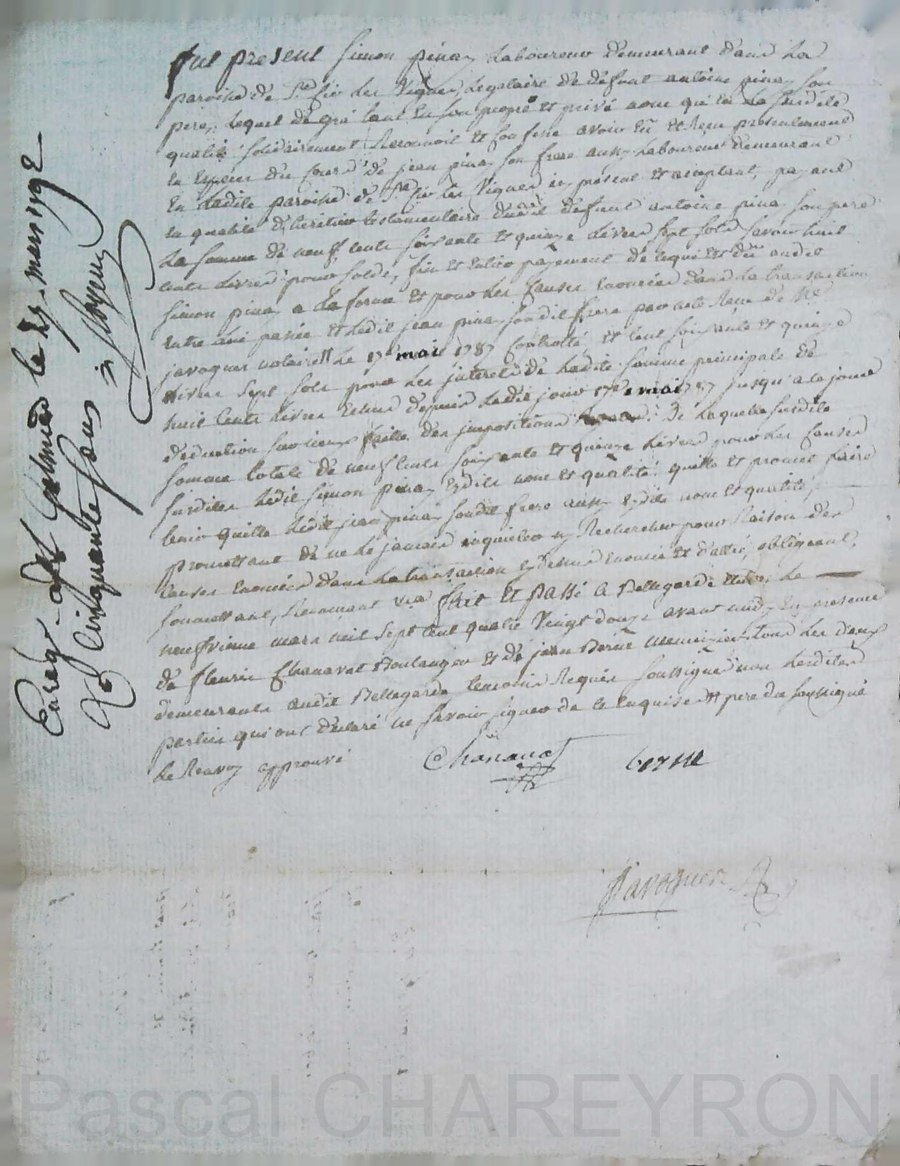 fut present Simon pinay Laboureur demeurant dans la
paroisse de St Cir les Vignes Legataire de défunt antoine pinay son
pere, lequel de gré tant en son propre et privé nom qu'en la susdite
qualité solidairement Reconnoit et confesse avoir eü et Reçu presentement
en Espèces du Cours de jean pinay son frere aussy Laboureur demeurant
en Ladite paroisse de St Cir les Vignes icy présent et acceptant, payant
en qualité d'heritier testamentaire dudit défunt antoine pinay son pere
La somme de neuf cents soixante et quinze Livres sept sols savoir huit
cents Livres pour solde, fin et entier payement de ce qui est dû audit
Simon pinay a la forme et pour les Causes enoncées dans la transaction
entre lui passée et ledit jean pinay son dit frere pardevant Me
javogues notaire le 17e mai 1787 controllé, et cent soixante et quinze
Livres sept sols pour les interets de Ladite somme principale de
huit cents livres Echus depuis Ledit jour 17e mai 1787 jusqu'a ce jour
déduction sur iceux faite des impositions De laquelle susdite
somme totale de neuf cents soixante et quinze Livres pour les Causes
susdites Ledit Simon pinay esdits noms et qualité, quitte et promet faire
tenir quitte Ledit jean pinay son dit frere aussy esdits noms et qualité,
promettant de ne le jamais inquieter ny Rechercher pour Raison des
Causes enoncées dans La transaction cy dessus Enoncée et datée, obligeant,
soumettant, Renonçant &a fait et passé a Bellegarde Etude, Le
neufvieme mars mil sept cent quatre vingt douze avant midy En presence
de fleurie Chanavat Boulanger et de jean Berne menuisier tous les deux
demeurants audit Bellegarde temoins Requis soussignés non Lesdites
parties qui ont déclaré ne savoir signer de ce Enquises et par du soussigné
le Renvoy approuvé
Chanavat Berne
Javogues
Enreg. a St Galmier le 23 mars 1792
Rç Cinquante sous